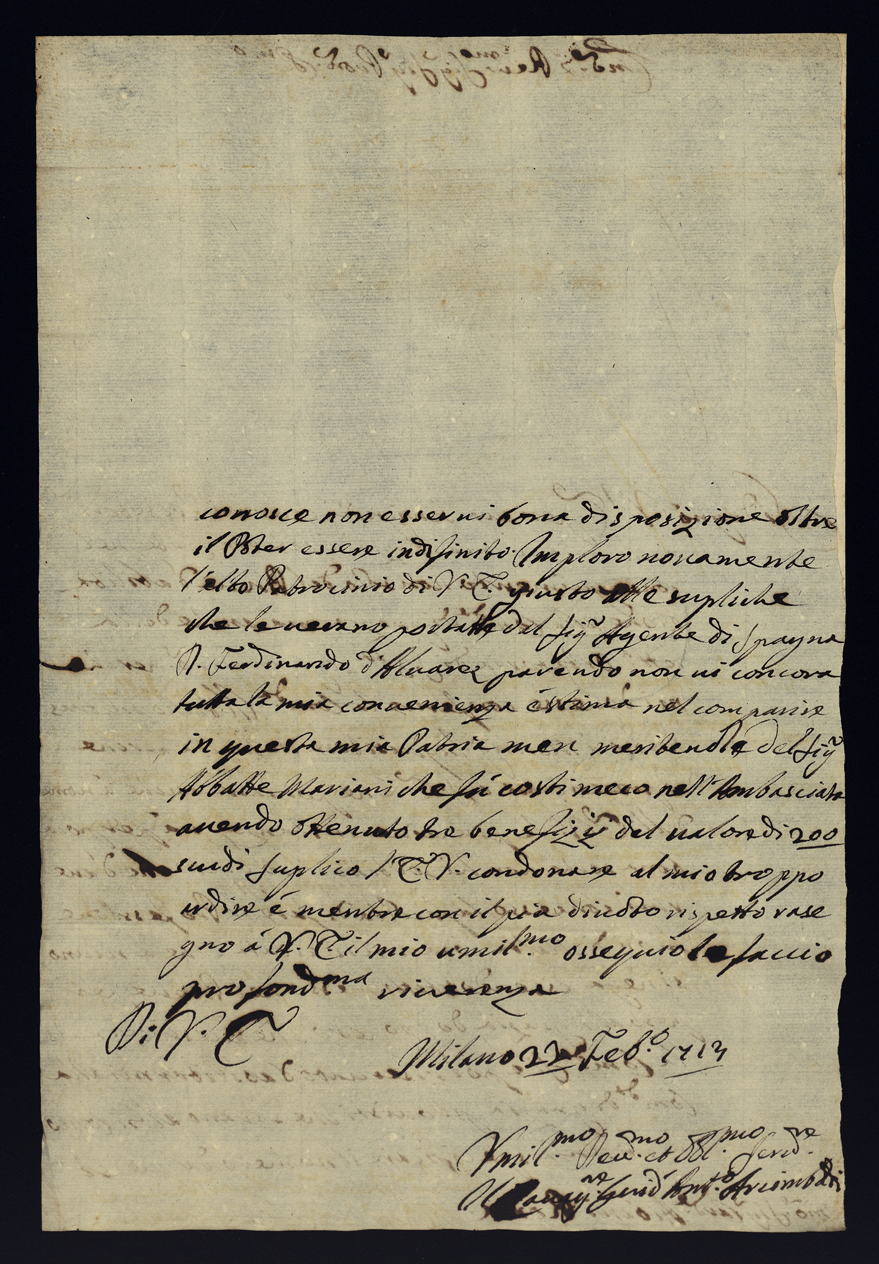 conosce non esserui bona disposizione oltre
il Poter essere indifinito. Imploro nouamente
l'alto Patrocinio di V. E. giusto alle supliche
che le uerano portatte dal Sig.r Agente di Spagna
D. Ferdinando d'Aluarez parendo non ui concora
tutta la mia conuenienza é stima nel comparire
in questa mia Patria men meritendole del Sig.r
Abbatte Mariani che fú costi meco nell'Ambasciata
auendo ottenuto tre benefizij del ualore di 200
scudi suplico l'E. V. condonare al mio troppo
ardire é mentre con il piú diuoto rispetto rase
gno á V. E. il mio umil.mo ossequio le faccio
profond.ma riuerenza
Di V. E.
Milano 22 Feb.o 1713
Vmil.mo Deu.mo et Obl.mo Seru.re
Ant.o Arcimboldi